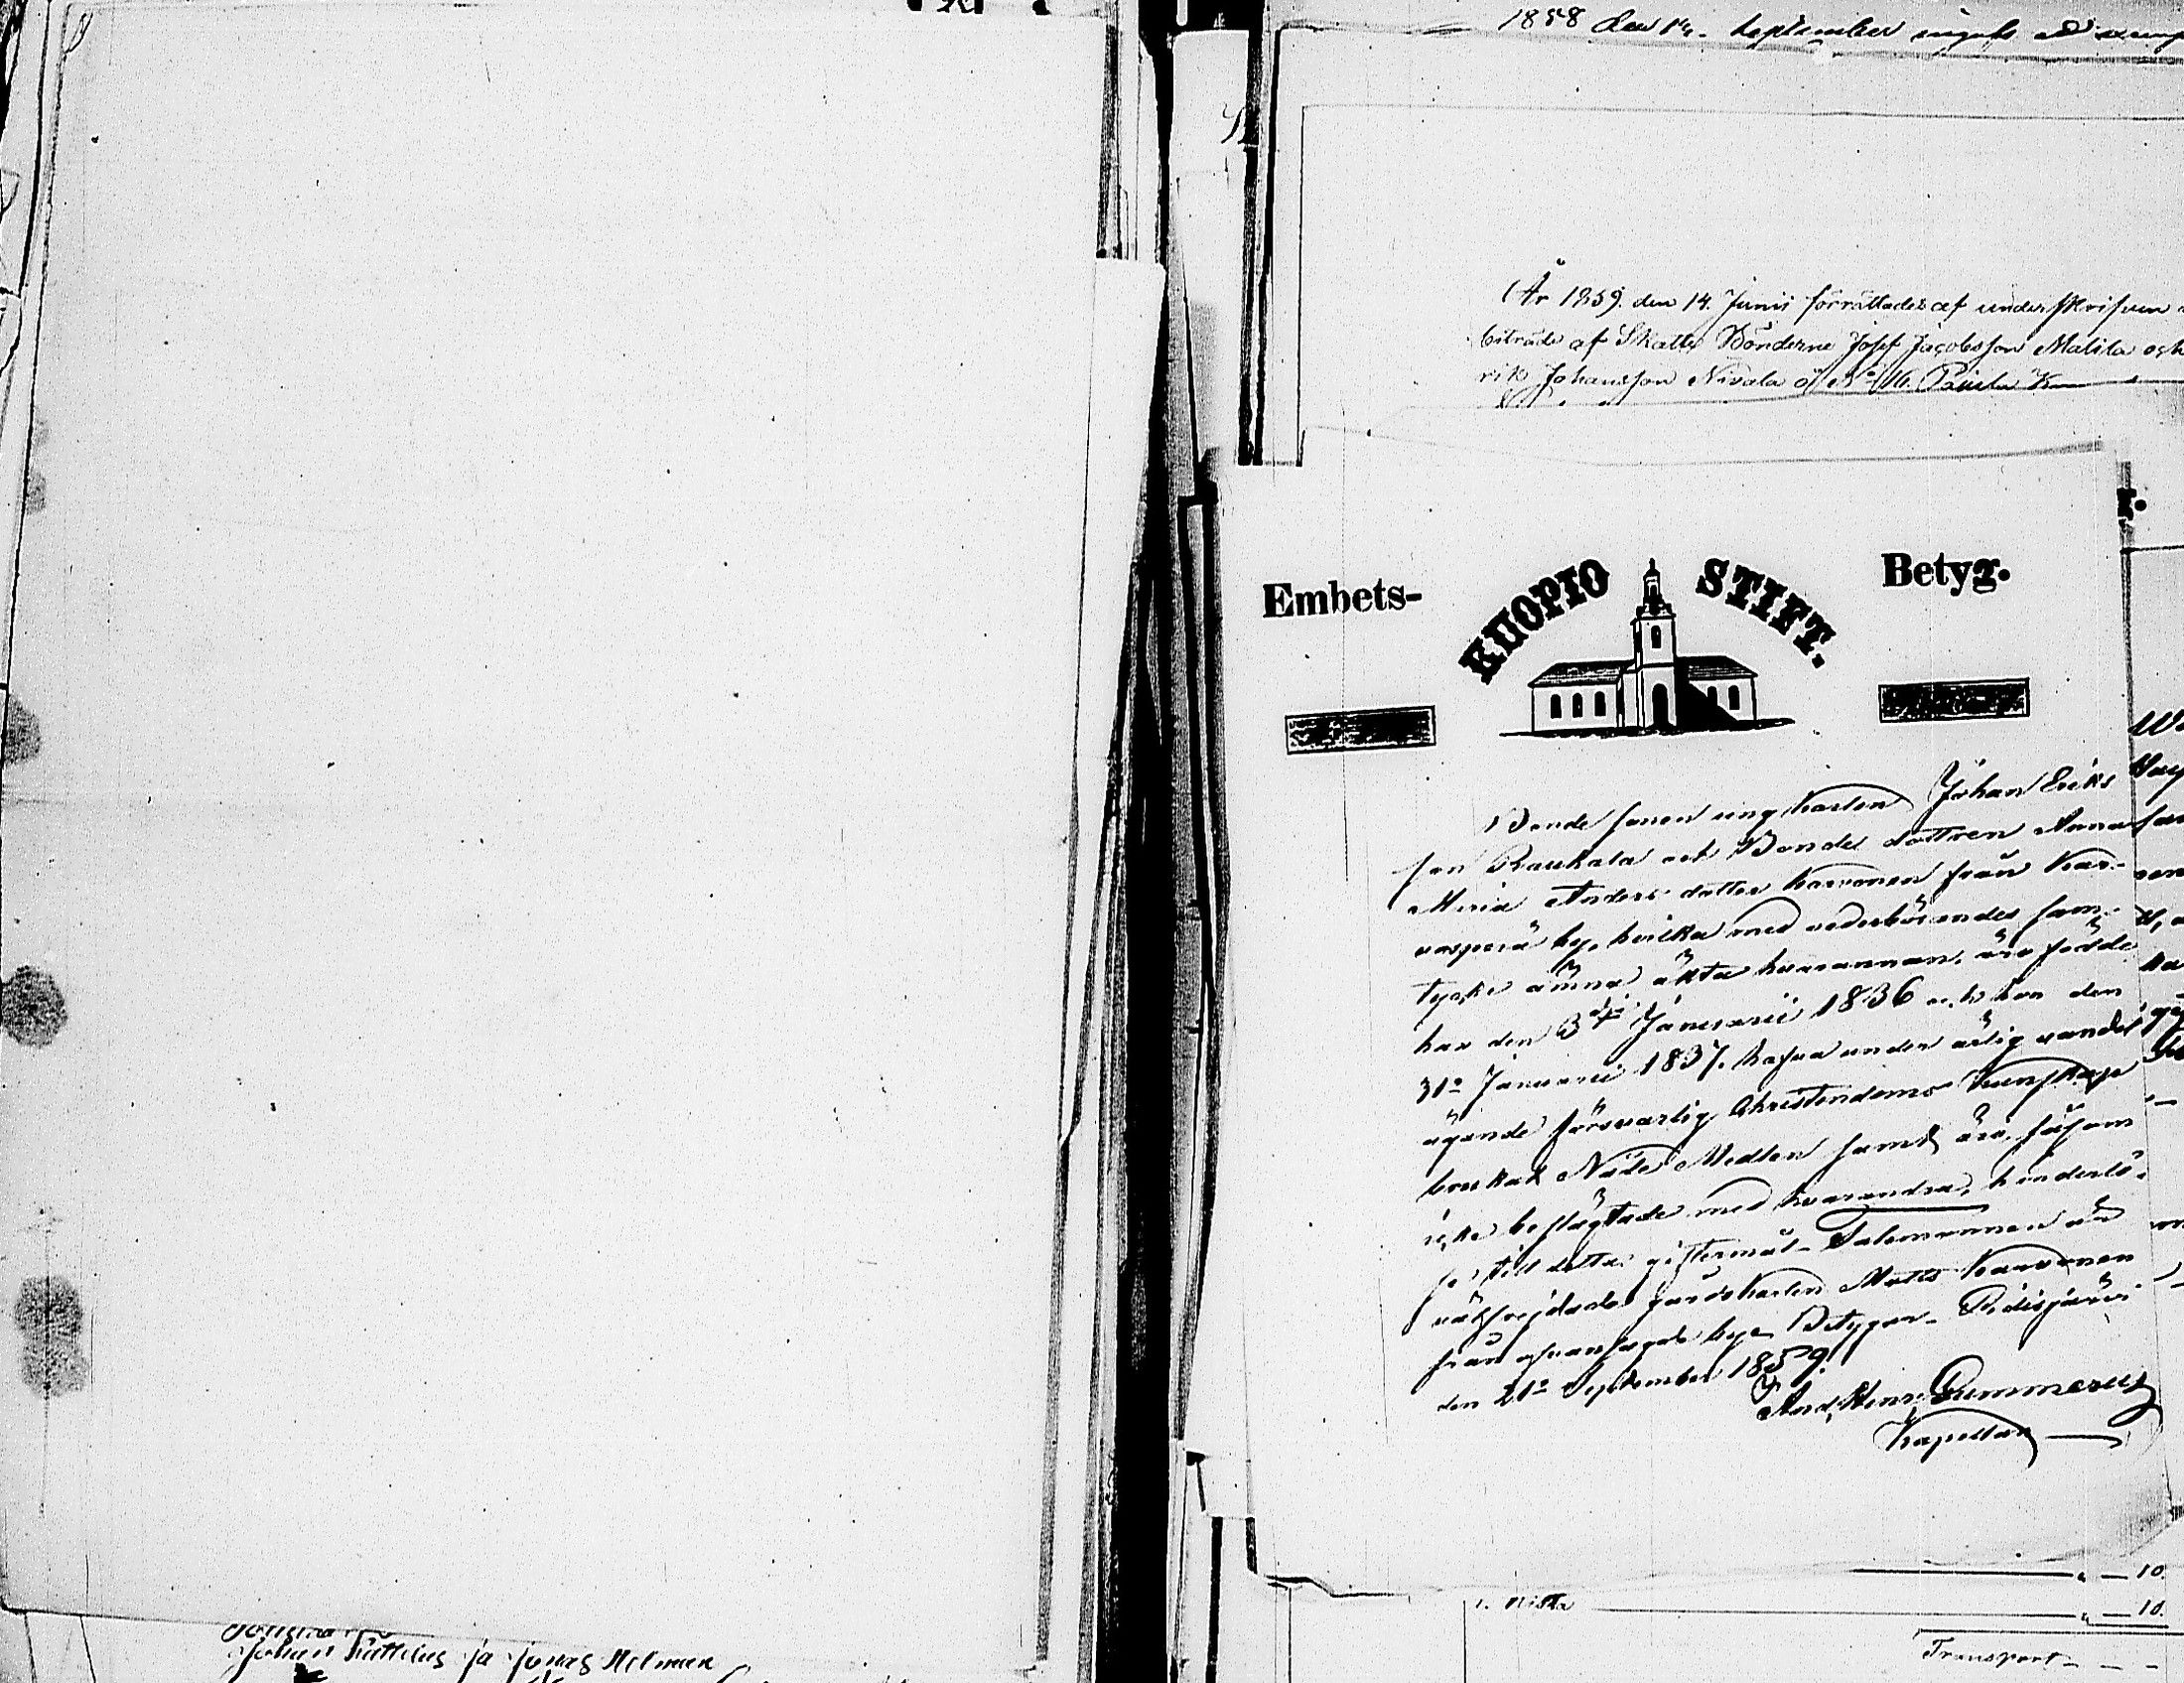 1858 den 14. September ingafs
År 1859. den 14. Junii förrättades af underskrifven
biträde af Skatte Bönderne Josef Jacobsson Matila och
rik Johansson Nivala å No 16.
Embets-
KUOPIO STIFT.
Betyg.
Bonde sonen ung karlen Johan Eriks
son Raukala och Bonde dottren Anna
Maria Anders dotter Karvonen från Kar-
vosperä by, hvilka med vederbörandes sam-
tycke ämna äkta hvarannan, äro födde
han den 3dje Januarii 1836 och hon den
31a Januarii 1837. hafva under ärlig vandel
ägande försvarlig Christendoms kunskap
brukat Nåde Medlen samt äro, såsom
icke beslägtade med hvarandra, hinderlö-
se till detta giftermål. Talemannen är
välfrejdade gårdskarlen Matts Karvonen
från ofvansagde by. Betygar. Pidisjärvi
den 21a September 1859.
And. Henr. Gummerus
Kapellan
10.
1. Nista
10.
Transport
Johan Kuttilus ja Jonas